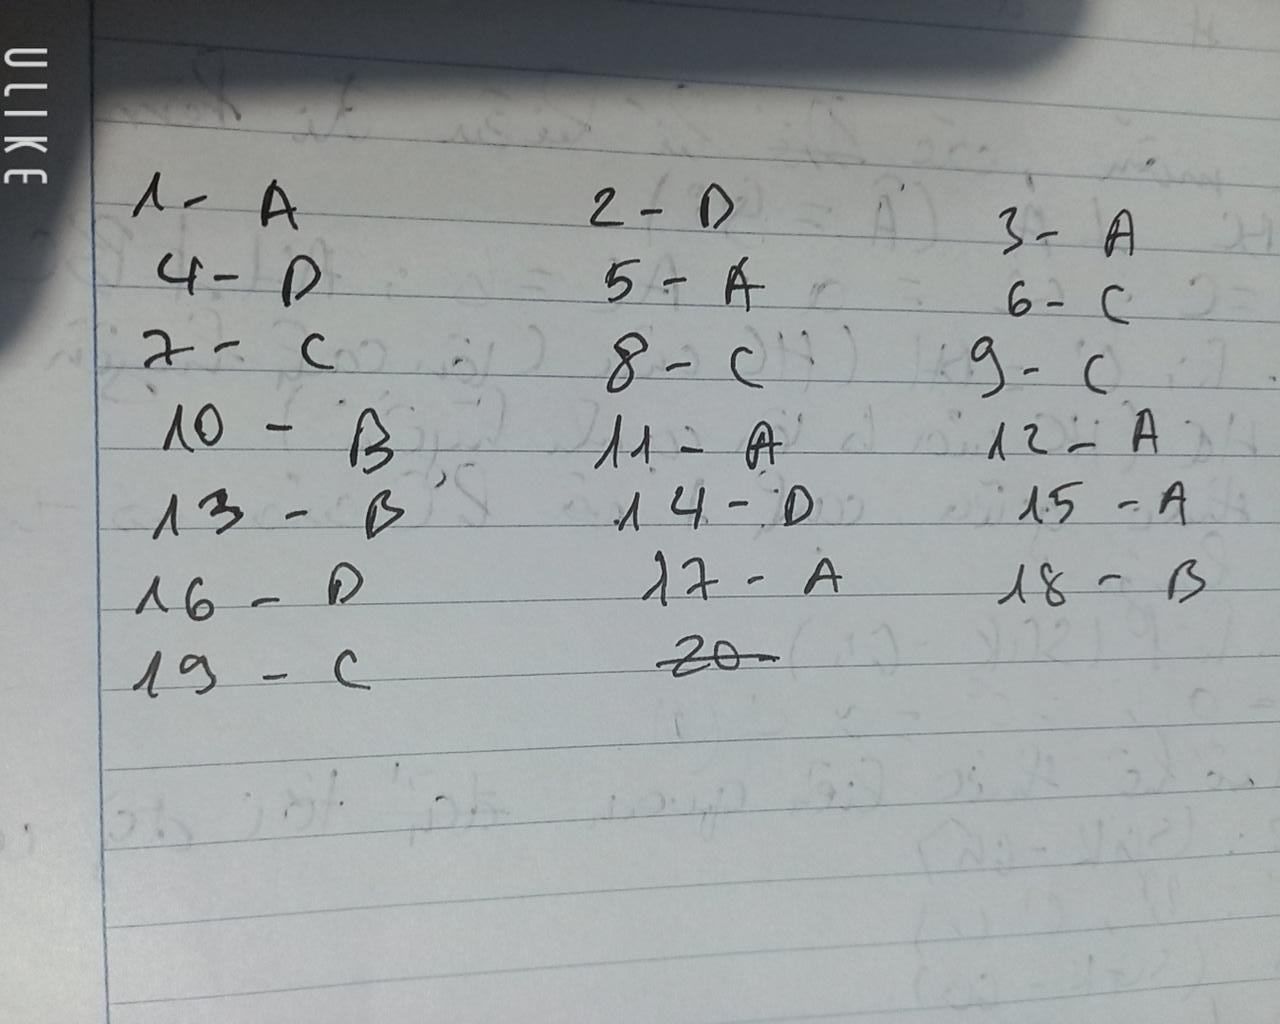 ULIKE
1- A 2 - D 3- A
4- D 5 - A 6- C
7- C 8 - C 9- C
10 - B 11 - A 12 - A
13 - B 14 - D 15 - A
16 - D 17 - A 18 - B
19 - C 20